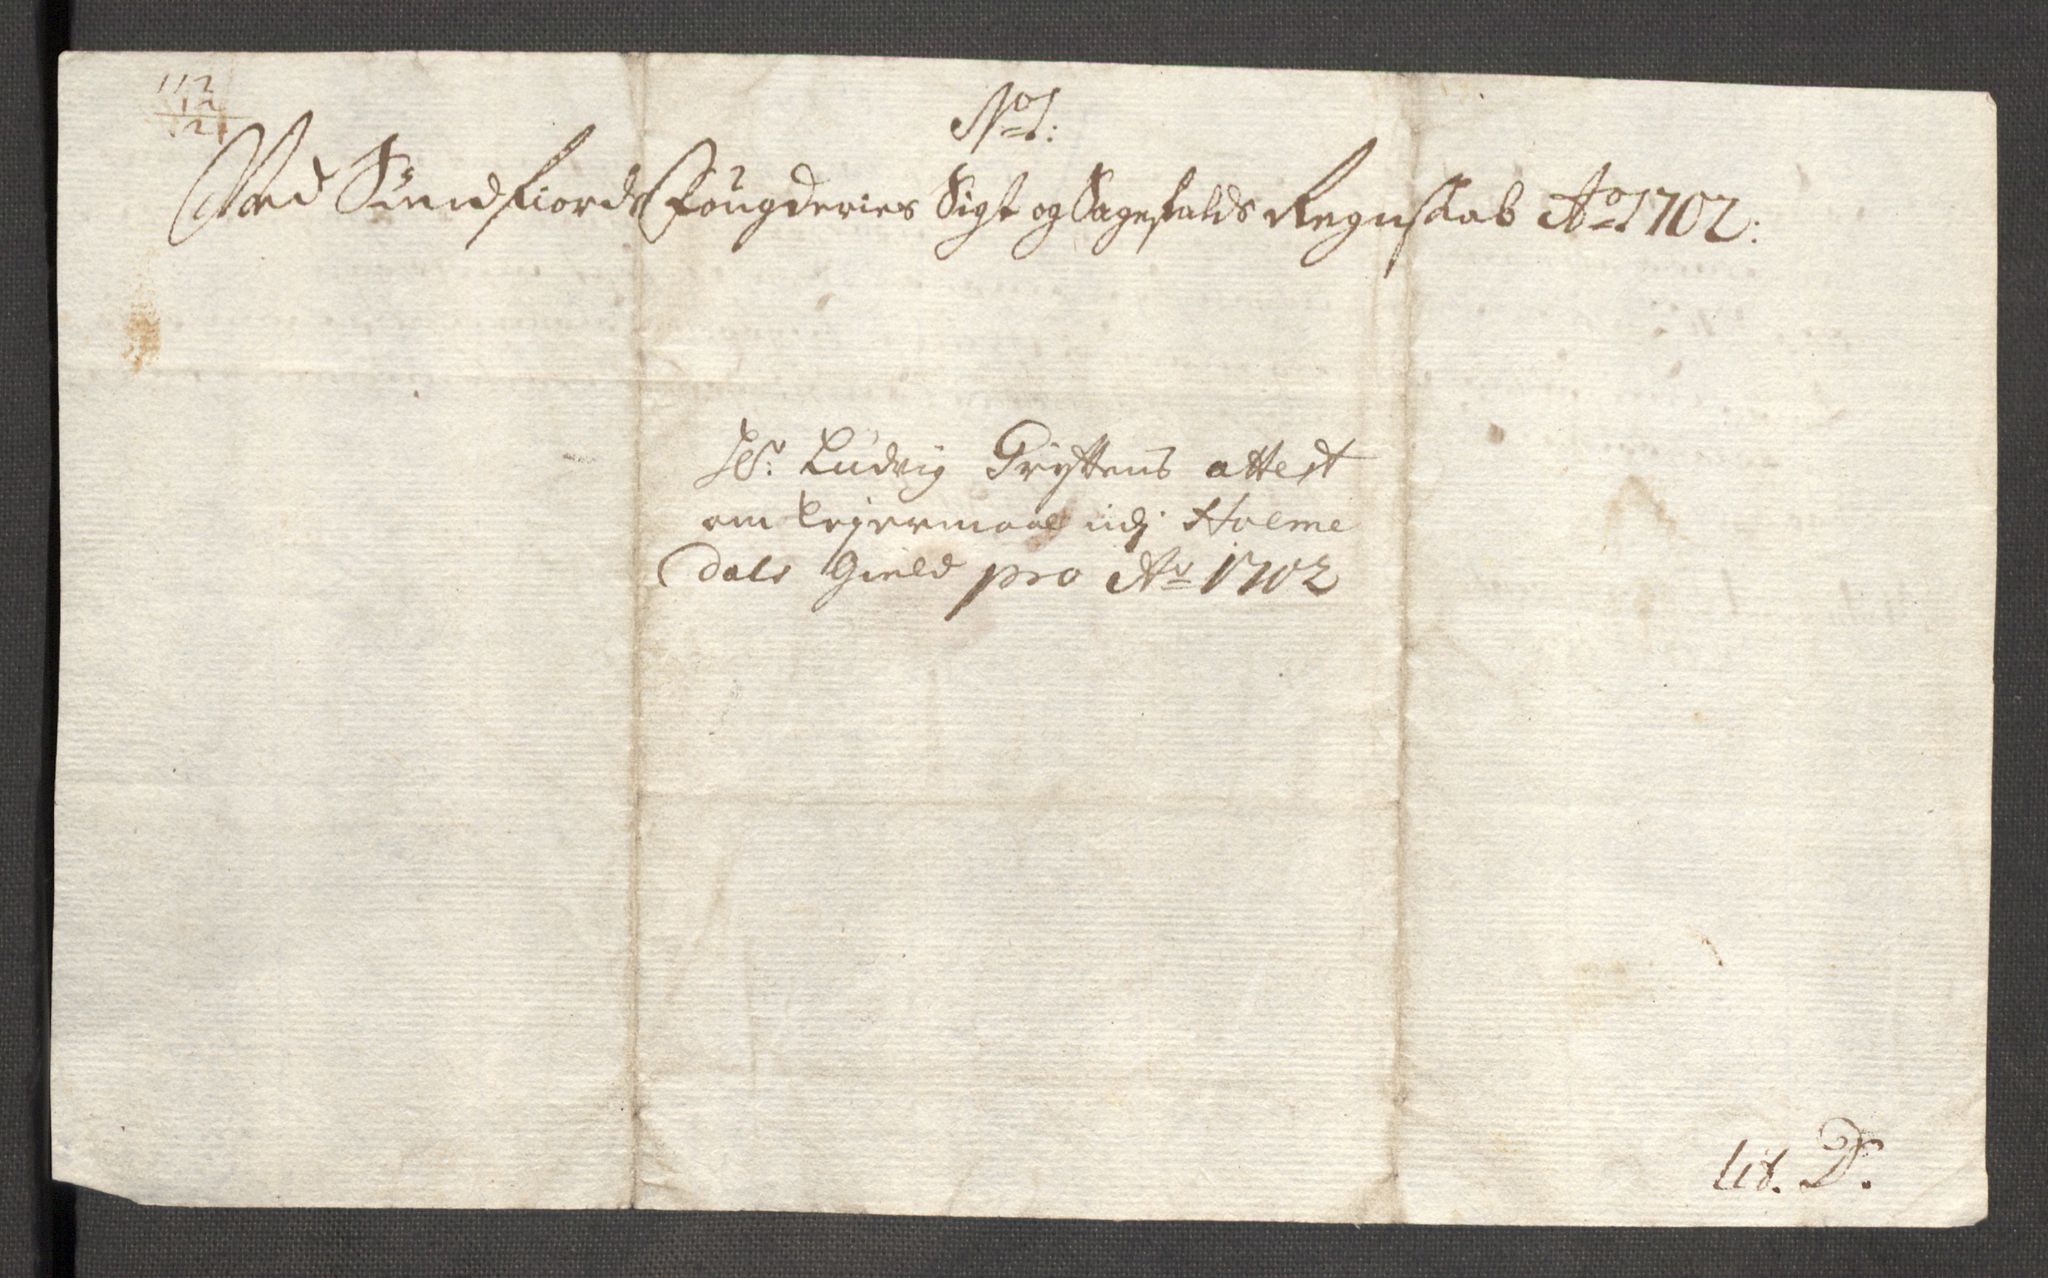 112
12
No 1:
Ved Sundfiords Fougderies Sigt og Sagefalds Regnskab Ao 1702:
Hr: Ludvig Tryttens attest
om lejermaal udj Holme
dals Gield pro Ao 1702
Lit. D.